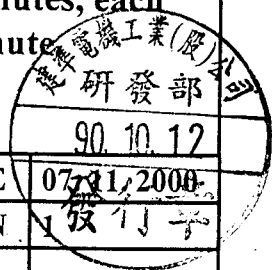 utes, each
nute
建準電機工業(股)公司
研發部
90.10.12
E 07/11/2000
N 1
發行章